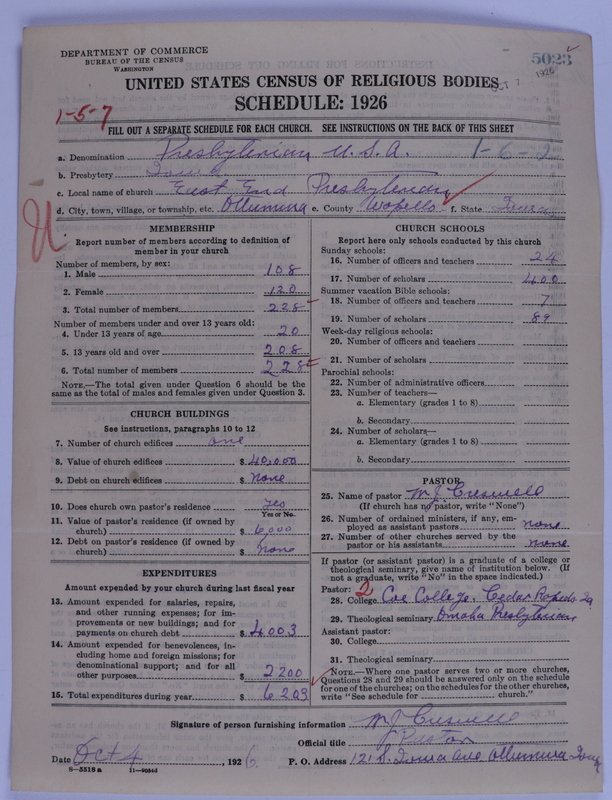 DEPARTMENT OF COMMERCE
BUREAU OF THE CENSUS
WASHINGTON
5023
OCT 7 1926
UNITED STATES CENSUS OF RELIGIOUS BODIES
SCHEDULE: 1926
1-5-7
FILL OUT A SEPARATE SCHEDULE FOR EACH CHURCH. SEE INSTRUCTIONS ON THE BACK OF THIS SHEET
a. Denomination Presbyterian U.S.A. 1-6-2
b. Presbytery Iowa
c. Local name of church East End Presbyterian
d. City, town, village, or township, etc. Ottumwa e. County Wapello f. State Iowa
MEMBERSHIP
Report number of members according to definition of
member in your church
Number of members, by sex:
1. Male 108
2. Female 120
3. Total number of members 228
Number of members under and over 13 years old:
4. Under 13 years of age 20
5. 13 years old and over 208
6. Total number of members 228
NOTE.—The total given under Question 6 should be the
same as the total of males and females given under Question 3.
CHURCH BUILDINGS
See instructions, paragraphs 10 to 12
7. Number of church edifices one
8. Value of church edifices $ 40,000
9. Debt on church edifices $ None
10. Does church own pastor's residence yes
Yes or No.
11. Value of pastor's residence (if owned by
church) $ 6,000
12. Debt on pastor's residence (if owned by
church) $ none
EXPENDITURES
Amount expended by your church during last fiscal year
13. Amount expended for salaries, repairs,
and other running expenses; for im-
provements or new buildings; and for
payments on church debt $ 4003
14. Amount expended for benevolences, in-
cluding home and foreign missions; for
denominational support; and for all
other purposes $ 2200
15. Total expenditures during year $ 6203
CHURCH SCHOOLS
Report here only schools conducted by this church
Sunday schools:
16. Number of officers and teachers 24
17. Number of scholars 400
Summer vacation Bible schools:
18. Number of officers and teachers 7
19. Number of scholars 89
Week-day religious schools:
20. Number of officers and teachers
21. Number of scholars
Parochial schools:
22. Number of administrative officers
23. Number of teachers—
a. Elementary (grades 1 to 8)
b. Secondary
24. Number of scholars—
a. Elementary (grades 1 to 8)
b. Secondary
PASTOR
25. Name of pastor M J Creswell
(If church has no pastor, write "None")
26. Number of ordained ministers, if any, em-
ployed as assistant pastors none
27. Number of other churches served by the
pastor or his assistants none
If pastor (or assistant pastor) is a graduate of a college or
theological seminary, give name of institution below. (If
not a graduate, write "No" in the space indicated.)
Pastor: 2
28. College Coe College. Cedar Rapids Ia
29. Theological seminary Omaha Presbyterian
Assistant pastor:
30. College
31. Theological seminary
NOTE.—Where one pastor serves two or more churches,
Questions 28 and 29 should be answered only on the schedule
for one of the churches; on the schedules for the other churches,
write "See schedule for church."
Signature of person furnishing information M J Creswell
Official title Pastor
Date Oct 4, 1926 P. O. Address 121 S. Iowa Ave Ottumwa Iowa
8-5518 a